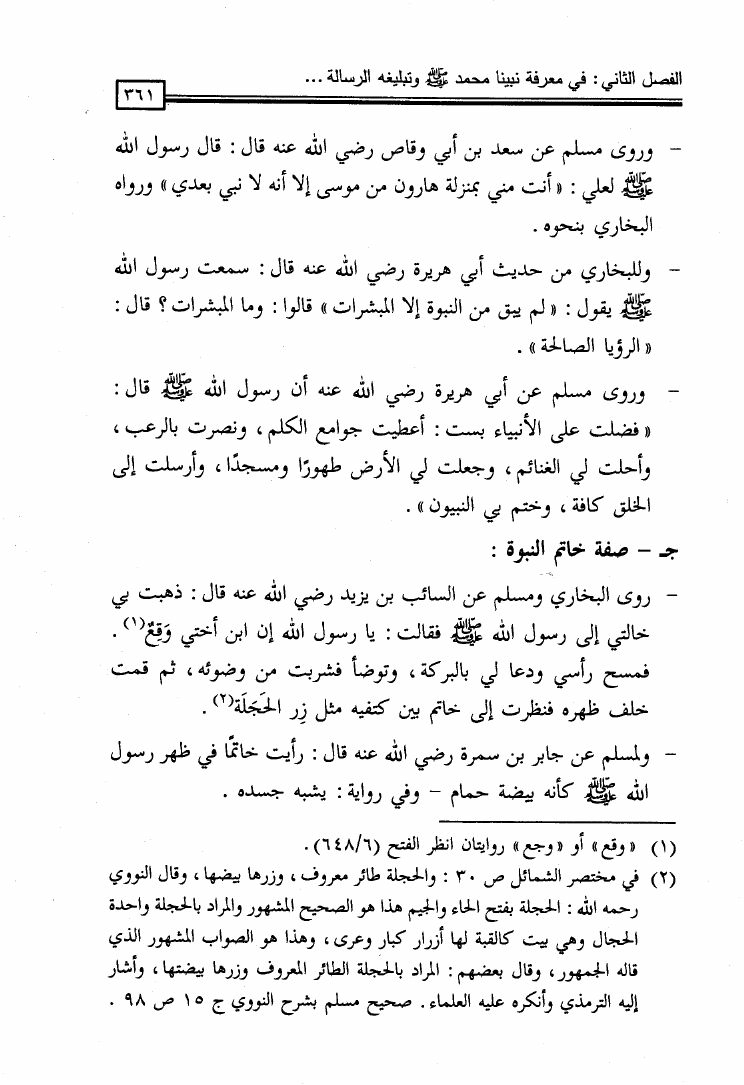 الفصل الثاني : في معرفة نبينا محمد ﷺ وتبليغه الرسالة ...
٣٦١
– وروى مسلم عن سعد بن أبي وقاص رضي الله عنه قال : قال رسول الله
ﷺ لعلي : «أنت مني بمنزلة هارون من موسى إلا أنه لا نبي بعدي» ورواه
البخاري بنحوه .
– وللبخاري من حديث أبي هريرة رضي الله عنه قال : سمعت رسول الله
ﷺ يقول : «لم يبق من النبوة إلا المبشرات» قالوا : وما المبشرات ؟ قال :
«الرؤيا الصالحة» .
– وروى مسلم عن أبي هريرة رضي الله عنه أن رسول الله ﷺ قال :
«فضلت على الأنبياء بست : أعطيت جوامع الكلم ، ونصرت بالرعب ،
وأحلت لي الغنائم ، وجعلت لي الأرض طهورًا ومسجدًا ، وأرسلت إلى
الخلق كافة ، وختم بي النبيون» .
جـ – صفة خاتم النبوة :
– روى البخاري ومسلم عن السائب بن يزيد رضي الله عنه قال : ذهبت بي
خالتي إلى رسول الله ﷺ فقالت : يا رسول الله إن ابن أختي وَقِعٌ(١) .
فمسح رأسي ودعا لي بالبركة ، وتوضأ فشربت من وضوئه ، ثم قمت
خلف ظهره فنظرت إلى خاتم بين كتفيه مثل زِر الحَجَلَة(٢) .
– ولمسلم عن جابر بن سمرة رضي الله عنه قال : رأيت خاتمًا في ظهر رسول
الله ﷺ كأنه بيضة حمام – وفي رواية : يشبه جسده .
(١) «وقع» أو «وجع» روايتان انظر الفتح (٦٤٨/٦) .
(٢) في مختصر الشمائل ص ٣٠ : والحجلة طائر معروف ، وزرها بيضها ، وقال النووي
رحمه الله : الحجلة بفتح الحاء والجيم هذا هو الصحيح المشهور والمراد بالحجلة واحدة
الحجال وهي بيت كالقبة لها أزرار كبار وعرى ، وهذا هو الصواب المشهور الذي
قاله الجمهور ، وقال بعضهم : المراد بالحجلة الطائر المعروف وزرها بيضتها ، وأشار
إليه الترمذي وأنكره عليه العلماء . صحيح مسلم بشرح النووي ج ١٥ ص ٩٨ .